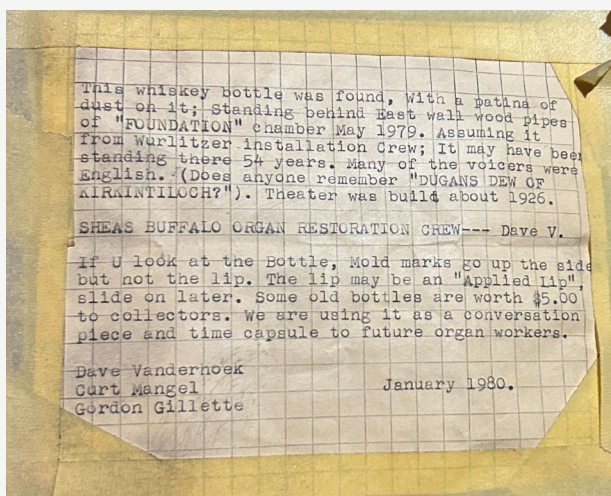 This whiskey bottle was found, with a patina of
dust on it; Standing behind East wall wood pipes
of "FOUNDATION" chamber May 1979. Assuming it
from Wurlitzer installation Crew; It may have been
standing there 54 years. Many of the voicers were
English. (Does anyone remember "DUGANS DEW OF
KIRKINTILOCH?"). Theater was build about 1926.
SHEAS BUFFALO ORGAN RESTORATION CREW--- Dave V.
If U look at the Bottle, Mold marks go up the side
but not the lip. The lip may be an "Applied Lip",
slide on later. Some old bottles are worth $5.00
to collectors. We are using it as a conversation
piece and time capsule to future organ workers.
Dave Vanderhoek
Curt Mangel January 1980.
Gordon Gillette